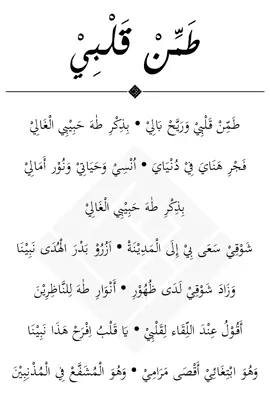 طَمِّنْ قَلْبِيْ
طَمِّنْ قَلْبِيْ وَرَيَّحْ بَالِيْ • بِذِكْرِ طٰهَ حَبِيْبِي الْغَالِيْ
فَجْرِ هَنَايَ فِيْ دُنْيَايَ • اُنْسِيْ وَحَيَاتِيْ وَنُوْر أَمَالِيْ
بِذِكْرِ طٰهَ حَبِيْبِي الْغَالِيْ
شَوْقِيْ سَعَى بِيْ إِلَى الْمَدِيْنَةْ • اَزُرُوْ بَدْرَ الْهُدَى نَبِيْنَا
وَزَادَ شَوْقِيْ لَدَى ظُهُوْرِ • أَنْوَارِ طٰهَ لِلنَّاظِرِيْنَ
أَقُوْلُ عِنْدَ اللِّقَاء لِقَلْبِيْ • يَا قَلْبُ اِفْرَحْ هَذَا نَبِيْنَا
وَهُوَ ابْتِغَائِيْ أَقْصَى مَرَامِيْ • وَهُوَ الْمُشَفَّعْ فِي الْمُذْنِبِيْنَ